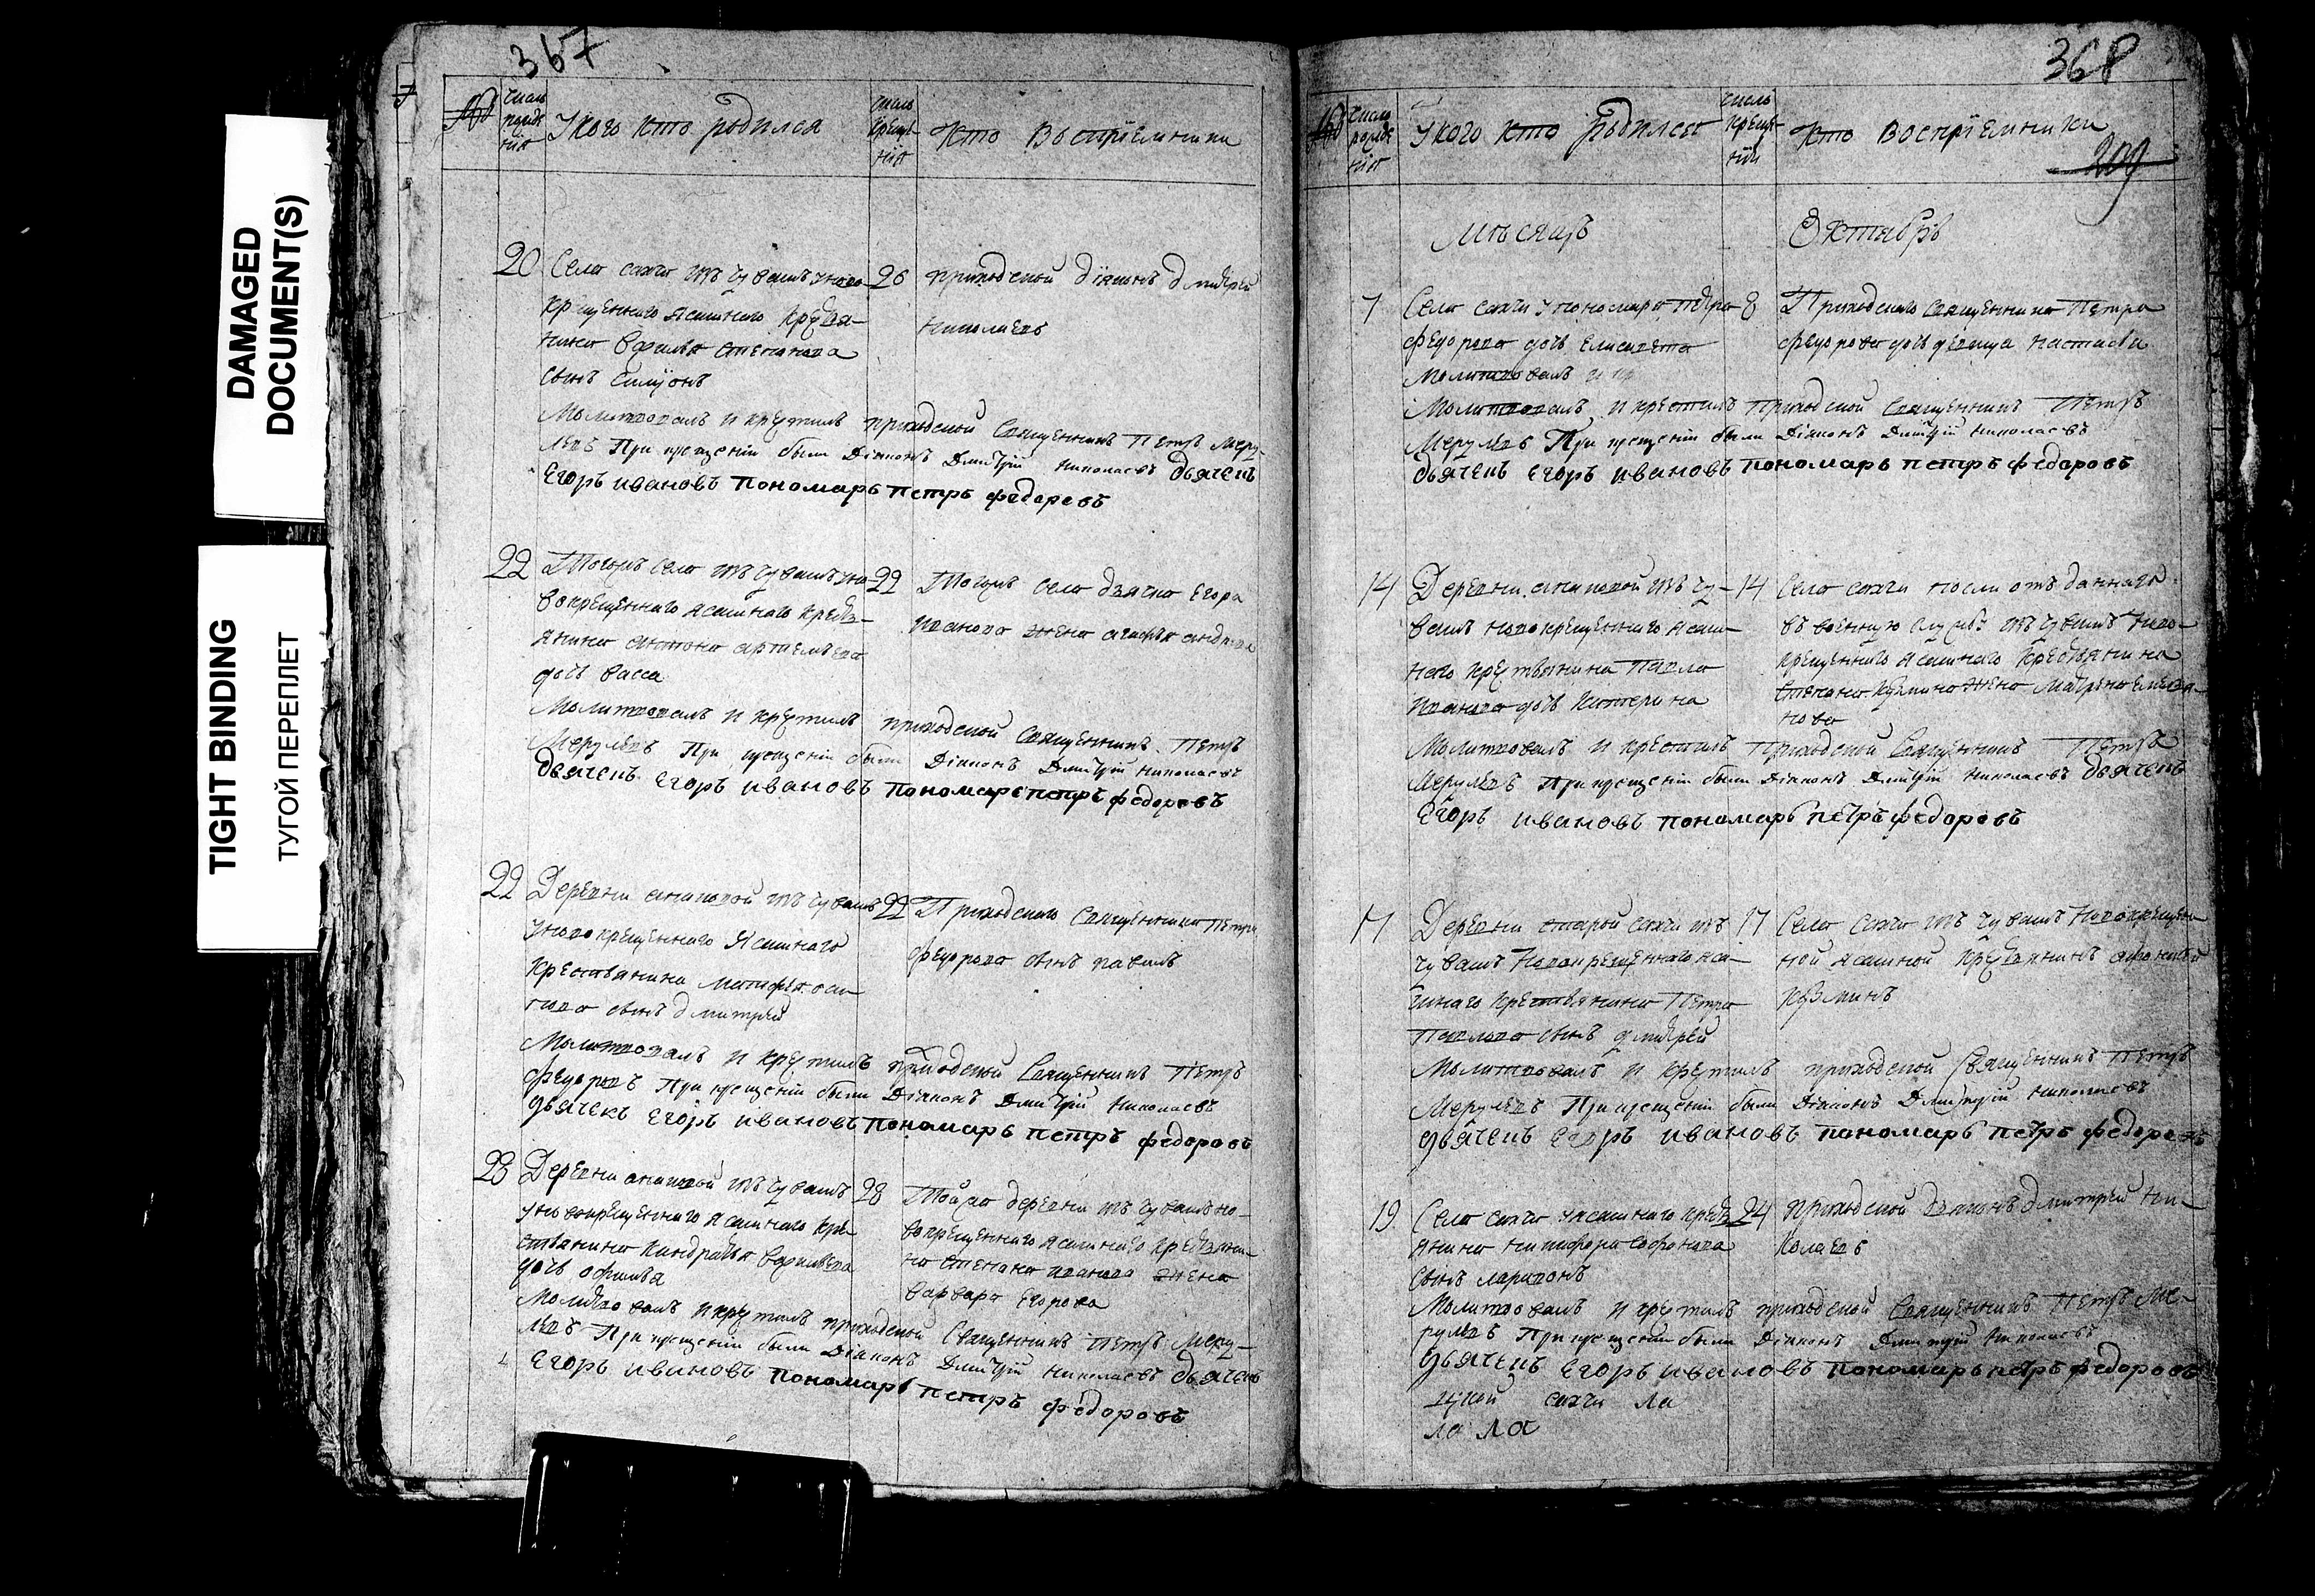 DAMAGED
DOCUMENT(S)
TIGHT BINDING
ТУГОЙ ПЕРЕПЛЕТ
367
№ число рожде нія
У кого кто родился
число креще нія
Кто Воспріемники
20 Села сахчи изъ чувашъ у ново
крещеннаго ясашнаго кресья-
нина Василья степанова
сынъ Симіонъ
26 приходской діаконъ дмитрей
николаевъ
Молитвовалъ и крестилъ приходской Священникъ Петръ Меру-
левъ При крещеніи были Діаконъ Дмитрій Николаевъ дьячекъ
Егоръ ивановъ пономарь петръ федоровъ
22 Тогожъ села изъ чувашъ у но-
вокрещеннаго ясашнаго кресьт-
янина антона артемьева
дочь васса
22 Тогожъ села дьячка Егора
иванова жена агафья андреева
Молитвовалъ и крестилъ приходской Священникъ Петръ
Мерулевъ При крещеніи были Діаконъ Дмитрій Николаевъ
дьячекъ Егоръ ивановъ пономарь петръ федоровъ
22 Деревни изъ чувашъ
у новокрещеннаго ясашнаго
крестьянина
сынъ дмитрей
22 Приходскаго Священника Петра
федорова сынъ павелъ
Молитвовалъ и крестилъ приходской Священникъ Петръ
федоровъ При крещеніи были Діаконъ Дмитрій Николаевъ
дьячекъ Егоръ ивановъ пономарь петръ федоровъ
23 Деревни изъ чувашъ
у новокрещеннаго ясашнаго кре-
стьянина кандратья Васильева
дочь офимья
28 Тойже деревни изъ чувашъ но-
вокрещеннаго ясашнаго крестьяни-
на степана иванова жена
варвара Егорова
Молитвовалъ и крестилъ приходской Священникъ Петръ Меру-
левъ При крещеніи были Діаконъ Дмитрій Николаевъ дьячекъ
Егоръ ивановъ пономарь петръ федоровъ
368
№ число рожде нія
У кого кто родился
число креще нія
Кто Воспріемники
209
Мѣсяцъ Октябрь
7 Села сахчи у пономаря петра
федорова дочь Елисавета
Молитвовалъ и кр
8 Приходскаго Священника Петра
федорова дочь девица настасья
Молитвовалъ и крестилъ Приходской Священникъ Петръ
Мерулевъ При крещеніи были Діаконъ Дмитрій Николаевъ
дьячекъ Егоръ ивановъ пономарь петръ федоровъ
14 Деревни изъ чу-
вашъ новокрещеннаго ясаш-
наго крестьянина Павла
Иванова дочь Катерина
14 Села сахчи посли отъданнаго
въ военную службу изъ чувашъ Ново-
крещеннаго ясашнаго Крестьянина
степана Кузмина жена Матрена Емелья-
нова
Молитвовалъ и крестилъ Приходской Священникъ Петръ
Мерулевъ При крещеніи были Діаконъ Дмитрій Николаевъ дьячекъ
Егоръ ивановъ пономарь петръ федоровъ
17 Деревни старой сахчи изъ
чувашъ Новокрещеннаго яса-
шнаго крестьянина Петра
Павлова сынъ дмитрей
17 Села Сахчи изъ чувашъ Новокрещен-
ной ясашной крестьянинъ афонасей
Кузминъ
Молитвовалъ и крестилъ приходской Священникъ Петръ
Мерулевъ При крещеніи были Діаконъ Дмитрій Николаевъ
дьячекъ Егоръ ивановъ пономарь петръ федоровъ
19 Села сахчи у ясашнаго крестъ-
янина никифора софонова
сынъ ларивонъ
24 приходской дьяконъ дмитрей ни-
колаевъ
Молитвовалъ и крестилъ приходской Священникъ Петръ Ме-
рулевъ При крещеніи были Діаконъ Дмитрій Николаевъ
дьячекъ Егоръ ивановъ пономарь петръ федоровъ
сахчи ла
ла ла